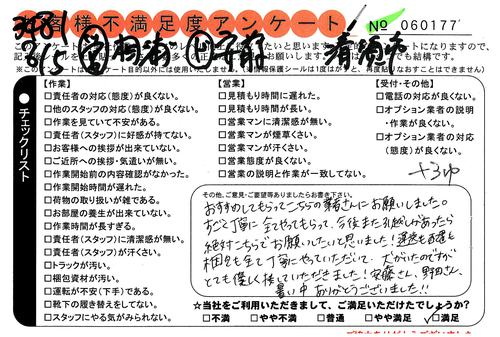 お客様不満足度アンケート
No 060177
※このアンケートは業務目的以外には使用いたしません。（※情報保護シールは1度はがすと、再度貼りなおすことはできません）
チェックリスト
【作業】
□責任者の対応(態度)が良くない。
□他のスタッフの対応(態度)が良くない。
□作業を見ていて不安がある。
□責任者(スタッフ)に好感が持てない。
□お客様への挨拶が出来ていない。
□ご近所への挨拶・気遣いが無い。
□作業開始前の内容確認がなかった。
□作業開始時間が遅れた。
□荷物の取り扱いが雑である。
□お部屋の養生が出来ていない。
□作業時間が長すぎる。
□責任者(スタッフ)に清潔感が無い。
□責任者(スタッフ)が汗くさい。
□トラックが汚い。
□梱包資材が汚い。
□運転が不安(下手)である。
□靴下の履き替えをしてない。
□スタッフにやる気がみられない。
【営業】
□見積もり時間に遅れた。
□見積もり時間が長い。
□営業マンに清潔感が無い。
□営業マンが煙草くさい。
□営業マンが汗くさい。
□営業態度が良くない。
□営業の説明と作業が一致してない。
【受付・その他】
□電話の対応が良くない。
□オプション業者の説明
・作業が良くない。
□オプション業者の対応
(態度)が良くない。
その他、ご意見・ご要望等ありましたらお書き下さい。
おすすめしてもらってこちらの業者さんにお願いしました。
すごく丁寧に全てやってもらって、今後また引越しがあったら
絶対こちらでお願いしたいと思いました!
とても優しく接していただきました!安藤さん、野田さん、
暑い中ありがとうございました!!
☆当社をご利用いただきまして、ご満足いただけたでしょうか?
□不満 □やや不満 □普通 □やや満足 ☑満足